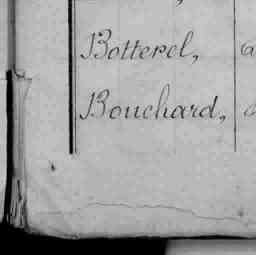 Botterel,
Bouchard,